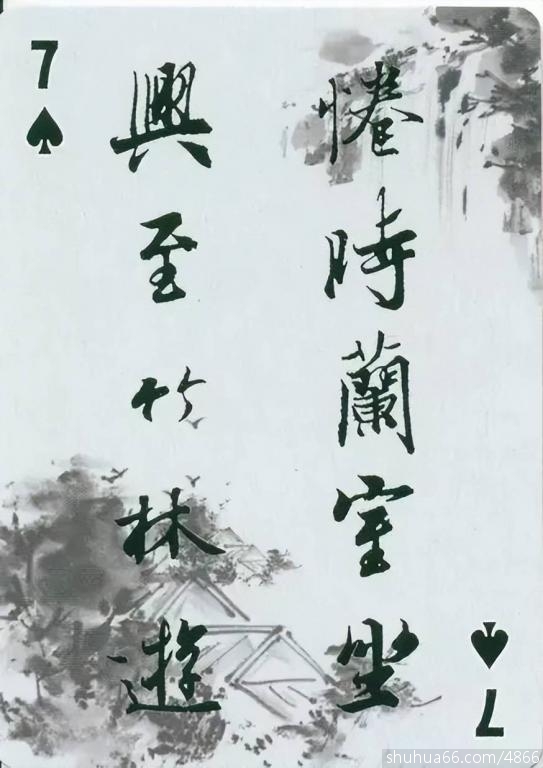 7
惓時蘭室坐
興至竹林遊
7
shuhua66.com/4866